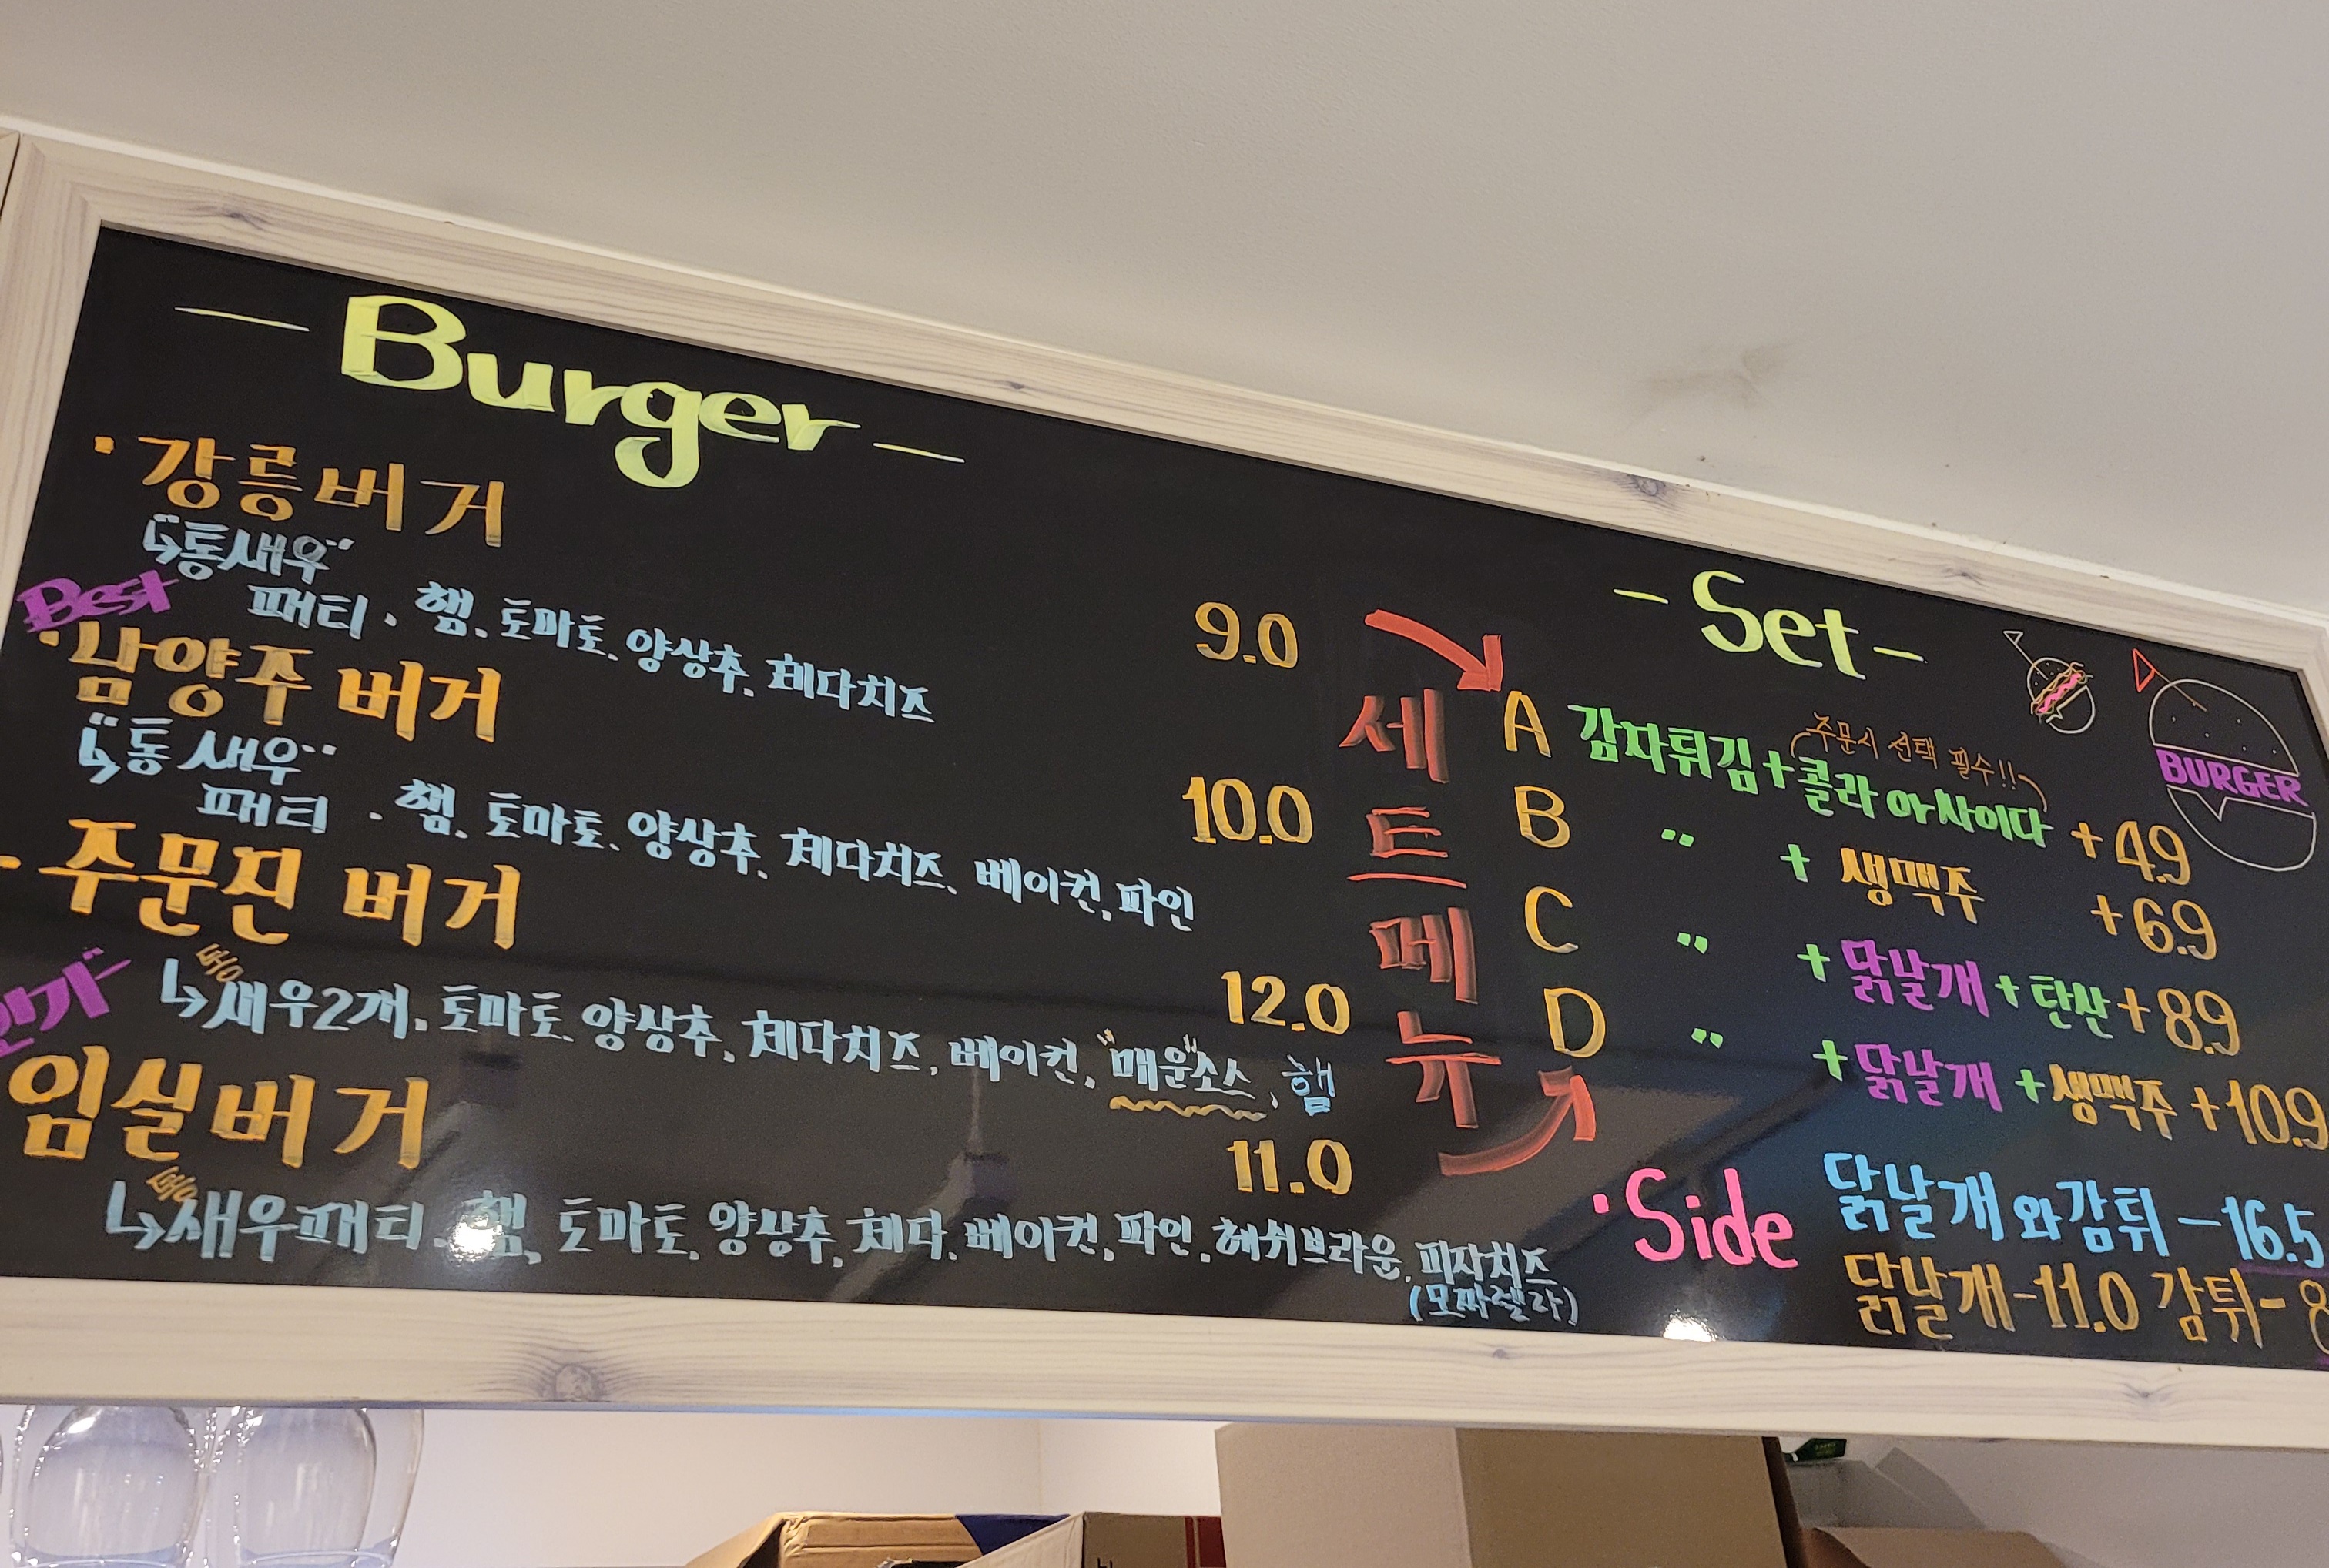 - Burger -
· 강릉버거
↳ "통새우"
패티. 햄. 토마토. 양상추. 체다치즈
9.0
Best
· 남양주 버거
↳ "통새우"
패티. 햄. 토마토. 양상추. 체다치즈. 베이컨, 파인
10.0
· 주문진 버거
↳ 통새우2개. 토마토. 양상추. 체다치즈, 베이컨, "매운"소스, 햄
12.0
인기
임실버거
↳ 통새우패티. 햄. 토마토. 양상추. 체다. 베이컨, 파인. 해쉬브라운, 피자치즈
(모짜렐라)
11.0
세트메뉴
- Set -
BURGER
주문시 선택 필수!!
A 감자튀김 + 콜라 or 사이다 +4.9
B " + 생맥주 +6.9
C " + 닭날개 + 탄산 +8.9
D " + 닭날개 + 생맥주 +10.9
· Side
닭날개와감튀 - 16.5
닭날개-11.0 감튀- 8